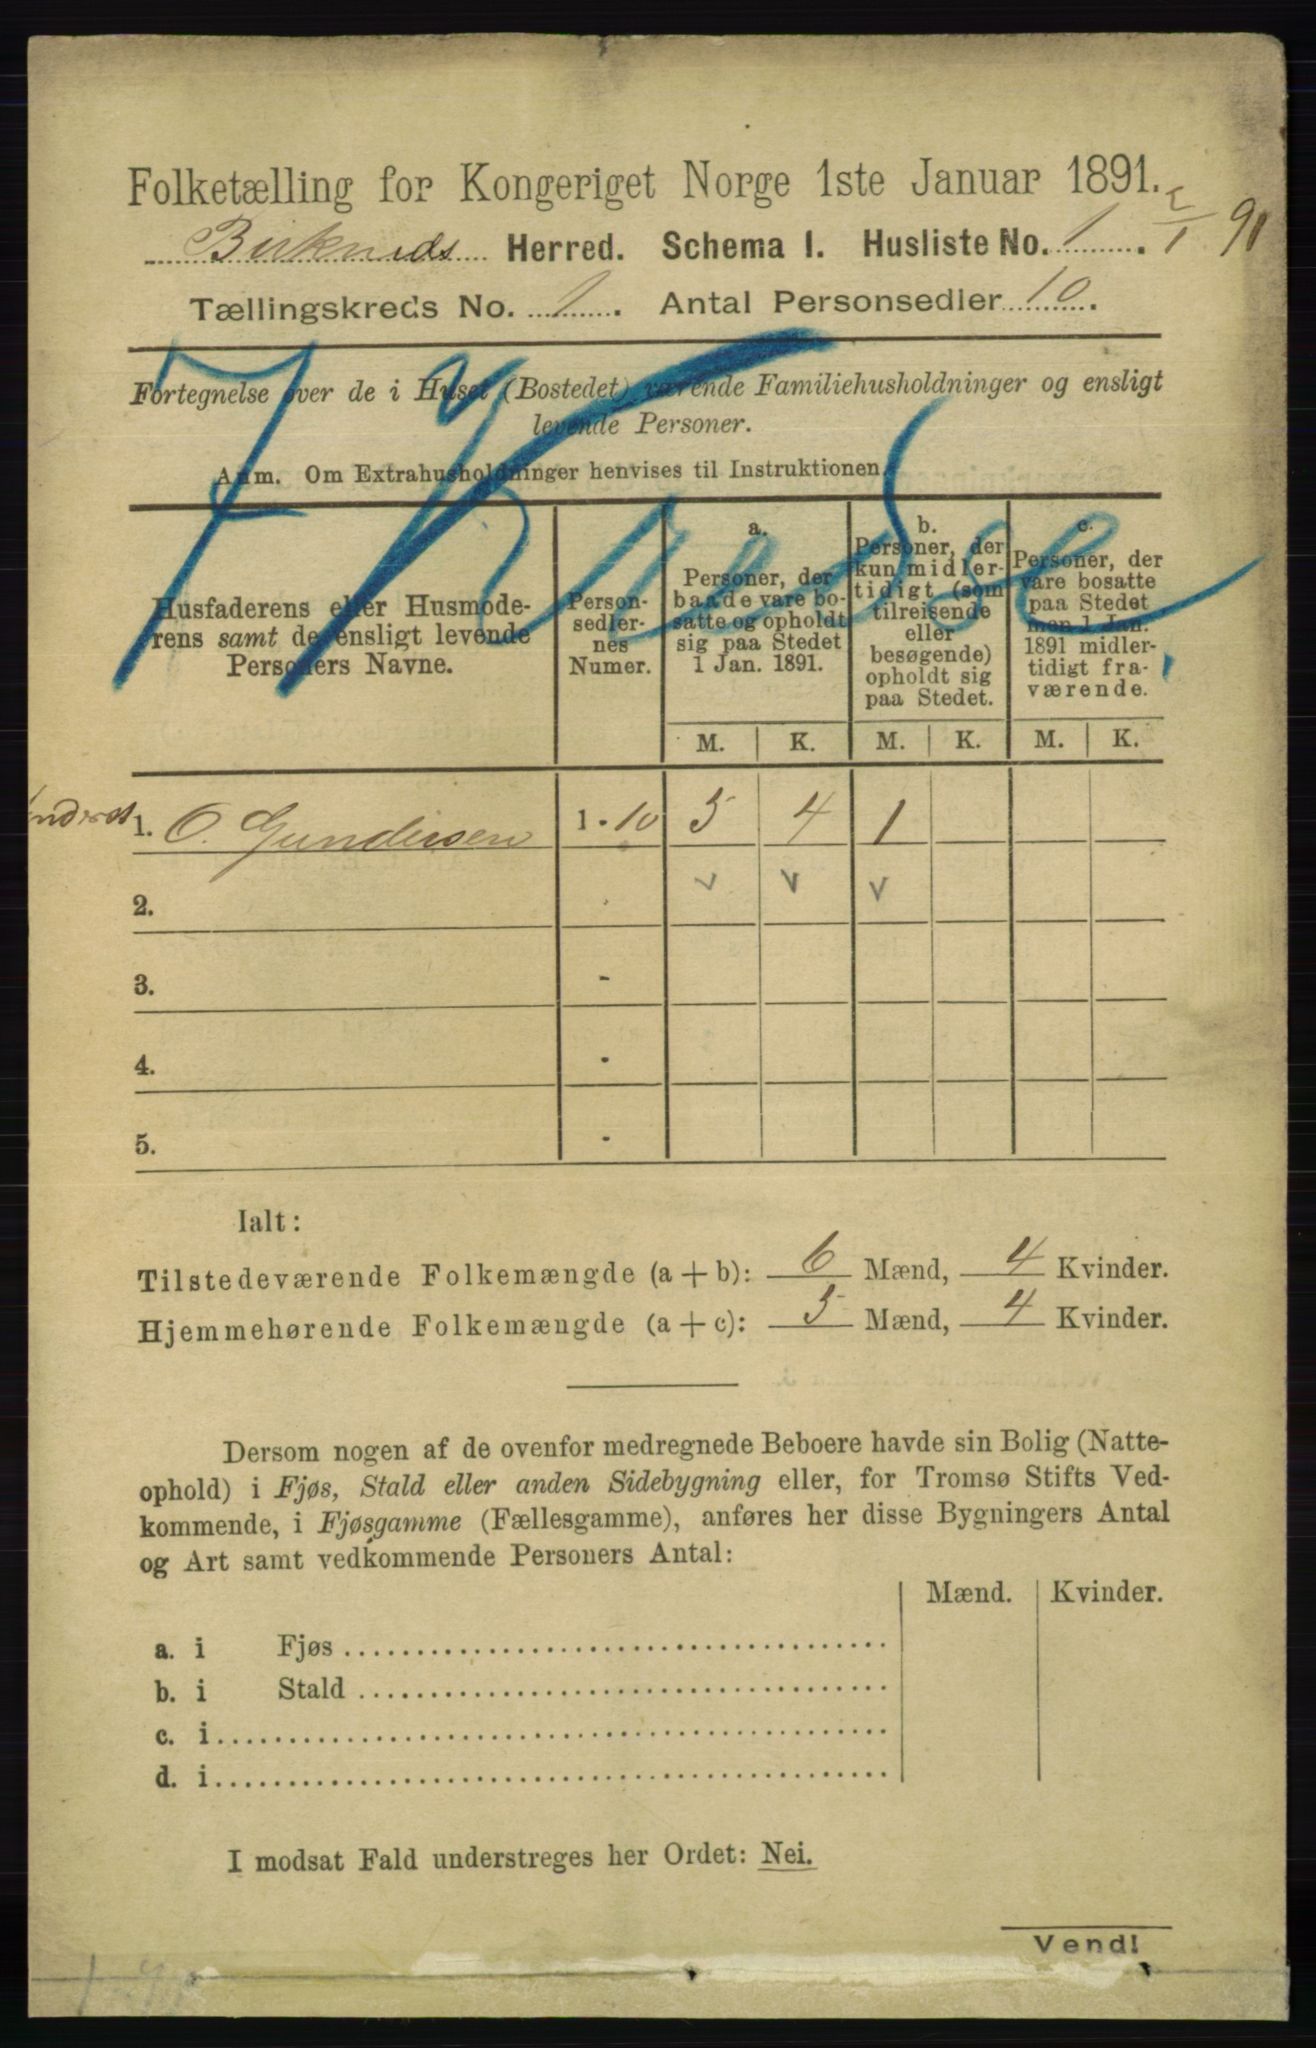 Folketælling for Kongeriget Norge 1ste Januar 1891.
Birkneds Herred. Schema I. Husliste No. 1.
Tællingskreds No. 1. Antal Personsedler 10.
Fortegnelse over de i Huset (Bostedet) værende Familiehusholdninger og ensligt
levende Personer.
Anm. Om Extrahusholdninger henvises til Instruktionen.
Husfaderens eller Husmode-
rens samt de ensligt levende
Personers Navne.
Person-
sedler-
nes
Numer.
a.
Personer, der
baade vare bo-
satte og opholdt
sig paa Stedet
1 Jan. 1891.
b.
Personer, der
kun midler-
tidigt (som
tilreisende
eller
besøgende)
opholdt sig
paa Stedet.
c.
Personer, der
vare bosatte
paa Stedet
men 1 Jan.
1891 midler-
tidigt fra-
værende.
M. K. M. K. M. K.
1. O. Gundersen 1 - 10 5 4 1
2.
3. -
4. -
5. -
Ialt:
Tilstedeværende Folkemængde (a + b): 6 Mænd, 4 Kvinder.
Hjemmehørende Folkemængde (a + c): 5 Mænd, 4 Kvinder.
Dersom nogen af de ovenfor medregnede Beboere havde sin Bolig (Natte-
ophold) i Fjøs, Stald eller anden Sidebygning eller, for Tromsø Stifts Ved-
kommende, i Fjøsgamme (Fællesgamme), anføres her disse Bygningers Antal
og Art samt vedkommende Personers Antal:
Mænd. Kvinder.
a. i Fjøs
b. i Stald
c. i
d. i
I modsat Fald understreges her Ordet: Nei.
Vend!